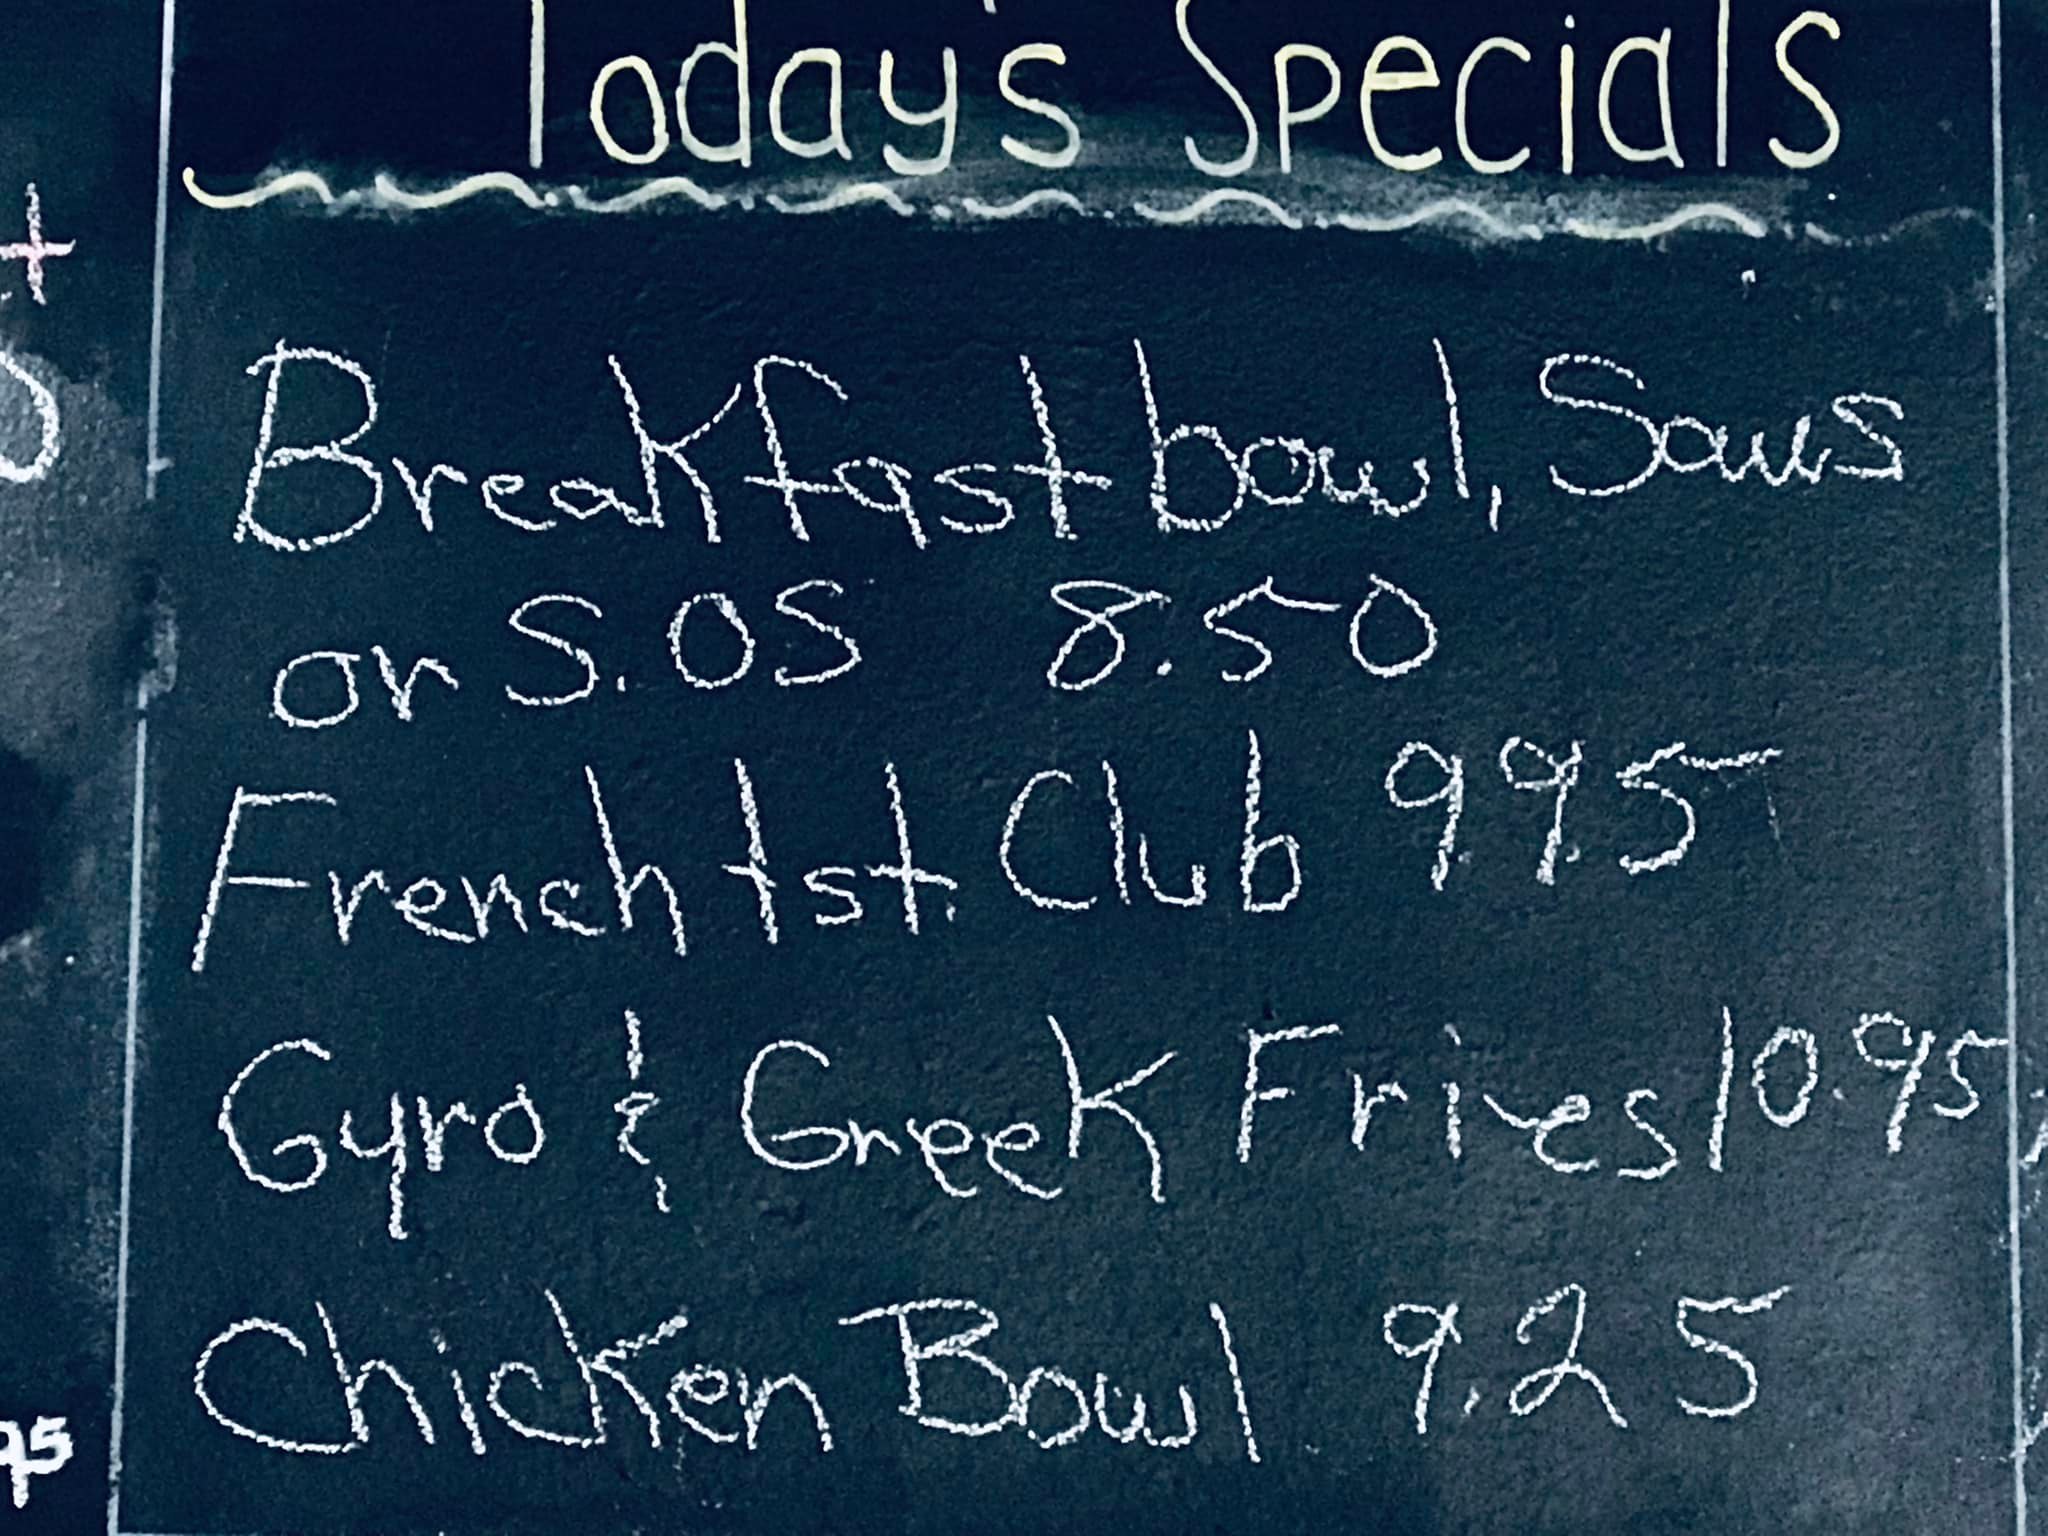 Today's Specials
Breakfast bowl, Saus
or S.OS 8.50
French tst. Club 9.95
Gyro & Greek Fries 10.95
Chicken Bowl 9.25
95